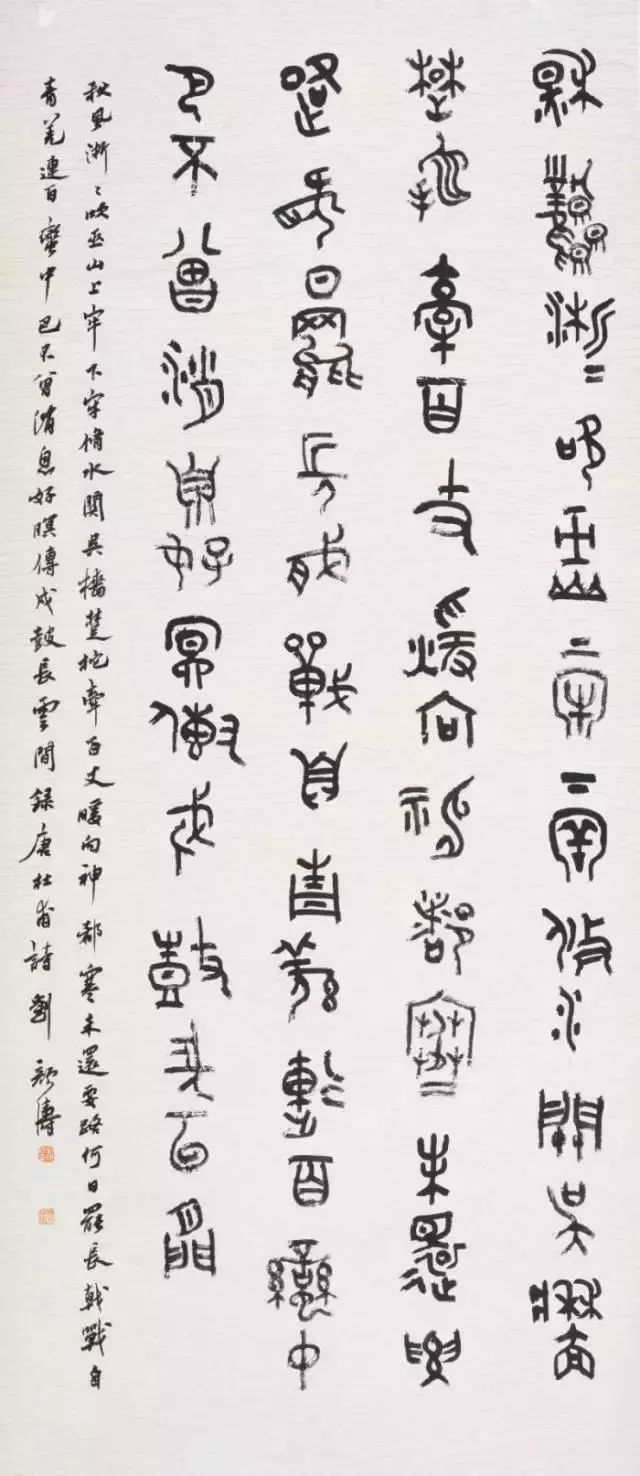 秋風淅〻吹巫山上牢下牢脩水關吳檣
楚柁牽百丈暖向神都寒未還要
路何日罷長戟戰自青羌連百蠻中
巴不曾消息好冥傳戍鼓長雲間
秋風淅〻吹巫山上牢下牢脩水關吳檣楚柁牽百丈暖向神都寒未還要路何日罷長戟戰自
青羌連百蠻中巴不曾消息好暝傳戍鼓長雲間錄唐杜甫詩劉顏濤